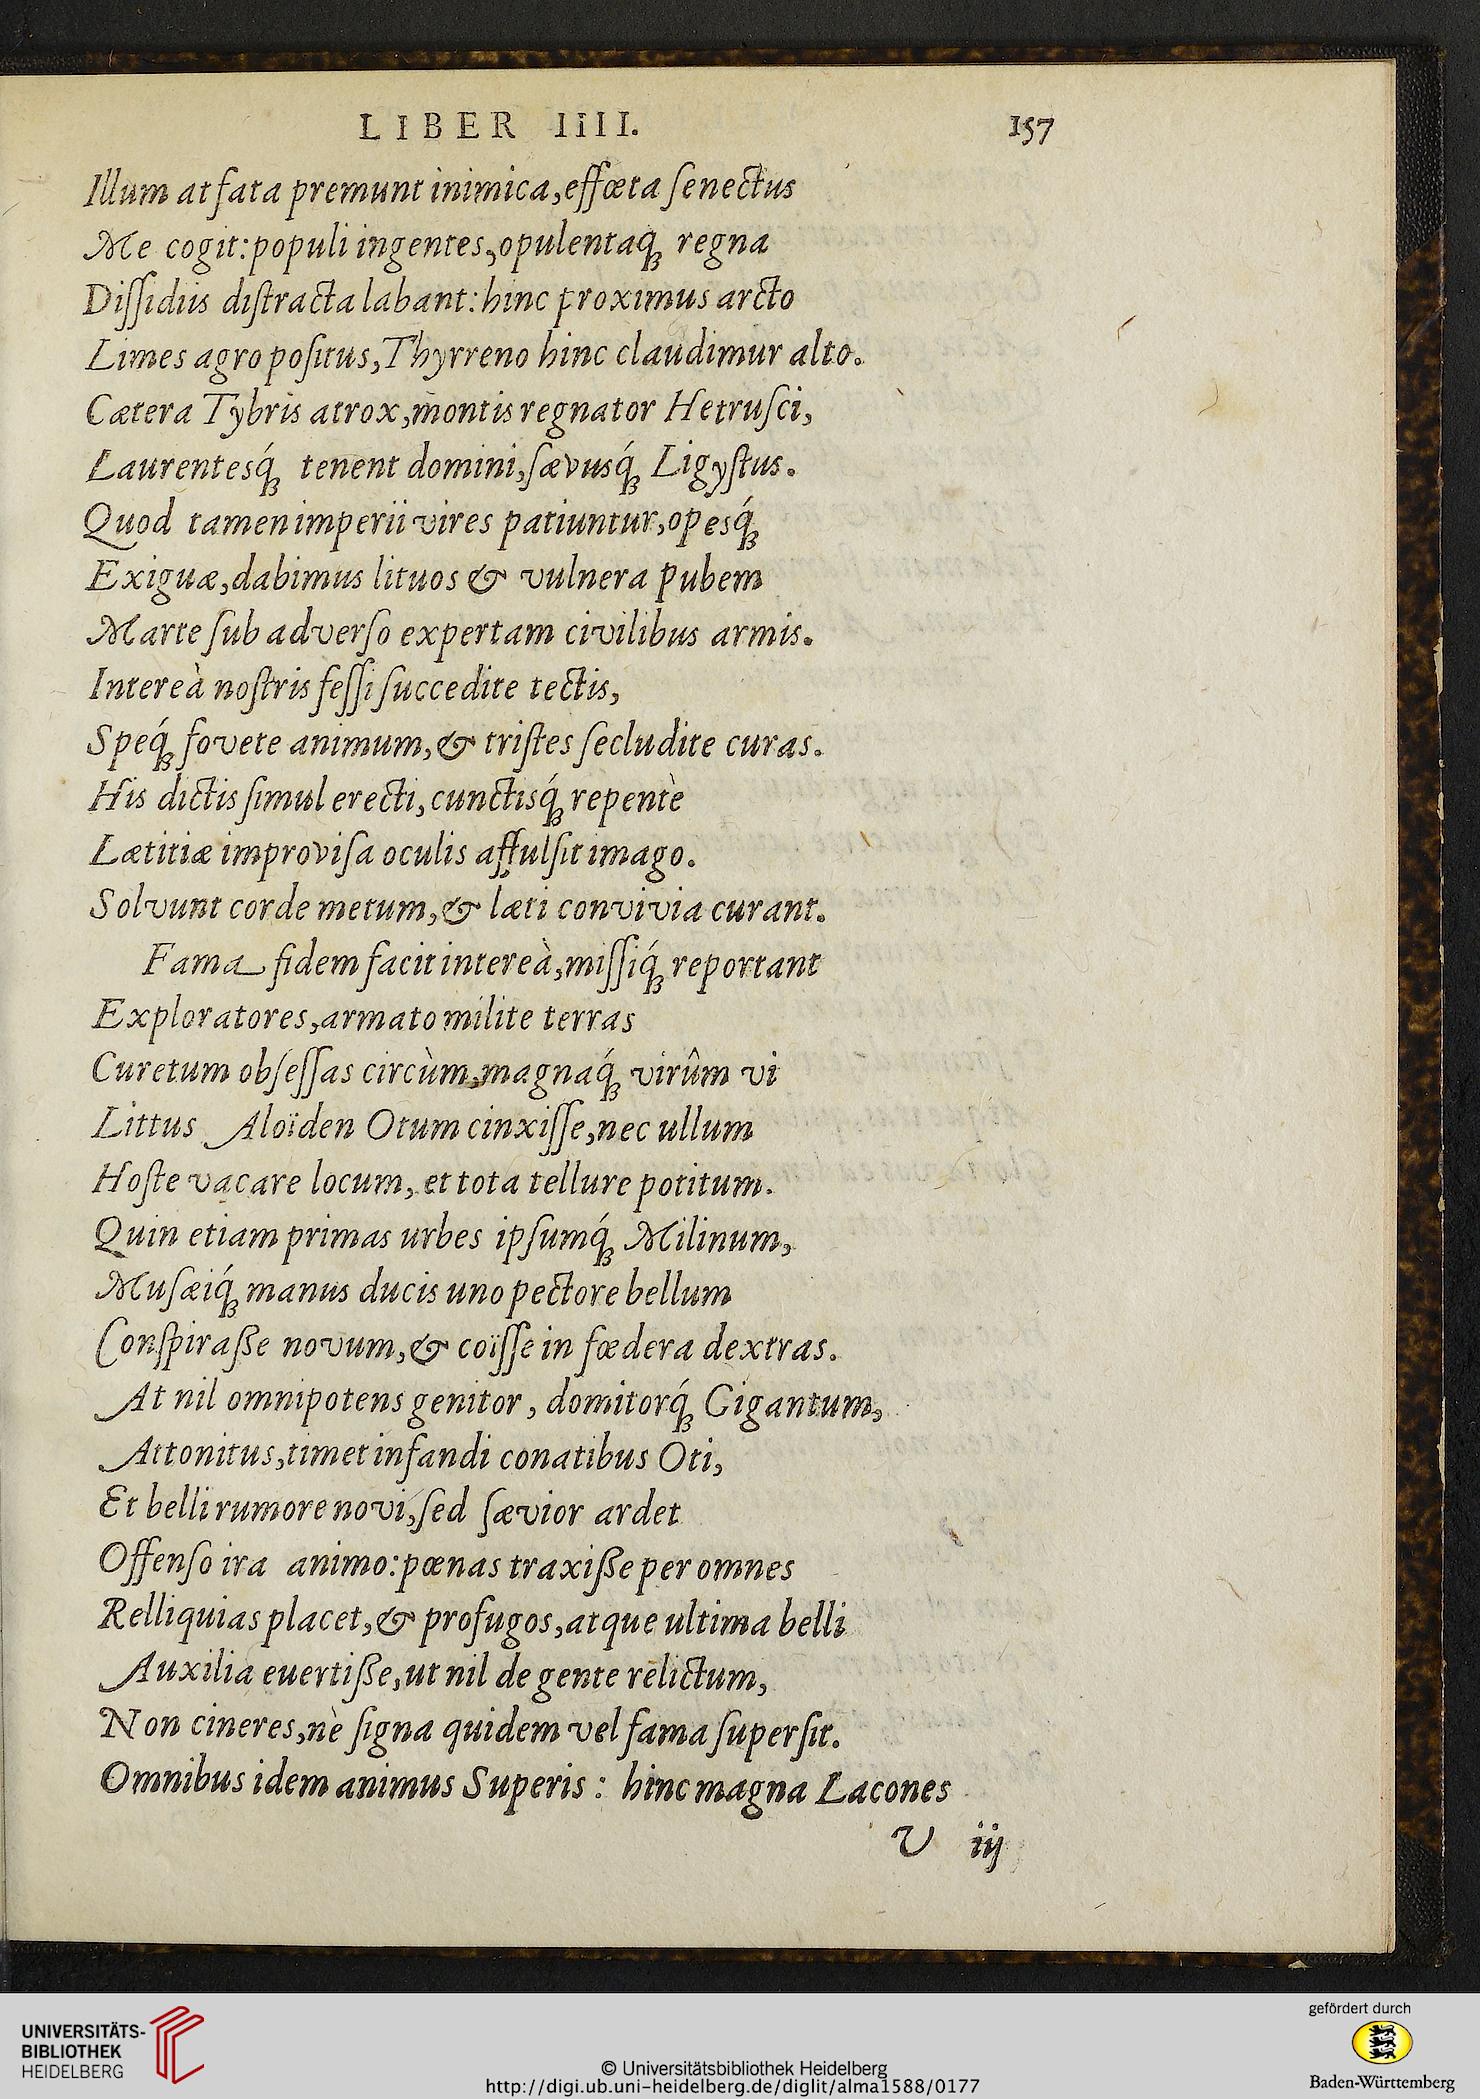 LIBER IIII. 157
Illum at fata premunt inimica, effœta ſenectus
Me cogit: populi ingentes, opulentaq́ꝫ regna
Diſſidiis diſtracta labant: hinc proximus arcto
Limes agro poſitus, Thyrreno hinc claudimur alto.
Cætera Tybris atrox, montis regnator Hetruſci,
Laurentesq́ꝫ tenent domini, ſævusq́ꝫ Ligyſtus.
Quod tamen imperii vires patiuntur, opesq́ꝫ
Exiguæ, dabimus lituos & vulnera pubem
Marte ſub adverſo expertam civilibus armis.
Intereà noſtris feſſi ſuccedite tectis,
Speq́ꝫ fovete animum, & triſtes ſecludite curas.
His dictis ſimul erecti, cunctisq́ꝫ repentè
Lætitiæ improviſa oculis affulſit imago.
Solvunt corde metum, & læti convivia curant.
Fama fidem facit intereà, miſſiq́ꝫ reportant
Exploratores, armato milite terras
Curetum obſeſſas circùm, magnaq́ꝫ virûm vi
Littus Aloïden Otum cinxiſſe, nec ullum
Hoſte vacare locum, et tota tellure potitum.
Quin etiam primas urbes ipſumq́ꝫ Milinum,
Muſæiq́ꝫ manus ducis uno pectore bellum
Conſpiraße novum, & coïſſe in fœdera dextras.
At nil omnipotens genitor, domitorq́ꝫ Gigantum,
Attonitus, timet infandi conatibus Oti,
Et belli rumore novi, ſed ſævior ardet
Offenſo ira animo: pœnas traxiße per omnes
Relliquias placet, & profugos, atque ultima belli
Auxilia evertiße, ut nil de gente relictum,
Non cineres, nè ſigna quidem vel fama ſuperſit.
Omnibus idem animus Superis: hinc magna Lacones
V iij
UNIVERSITÄTS-
BIBLIOTHEK
HEIDELBERG
© Universitätsbibliothek Heidelberg
http://digi.ub.uni-heidelberg.de/diglit/alma1588/0177
gefördert durch
Baden-Württemberg